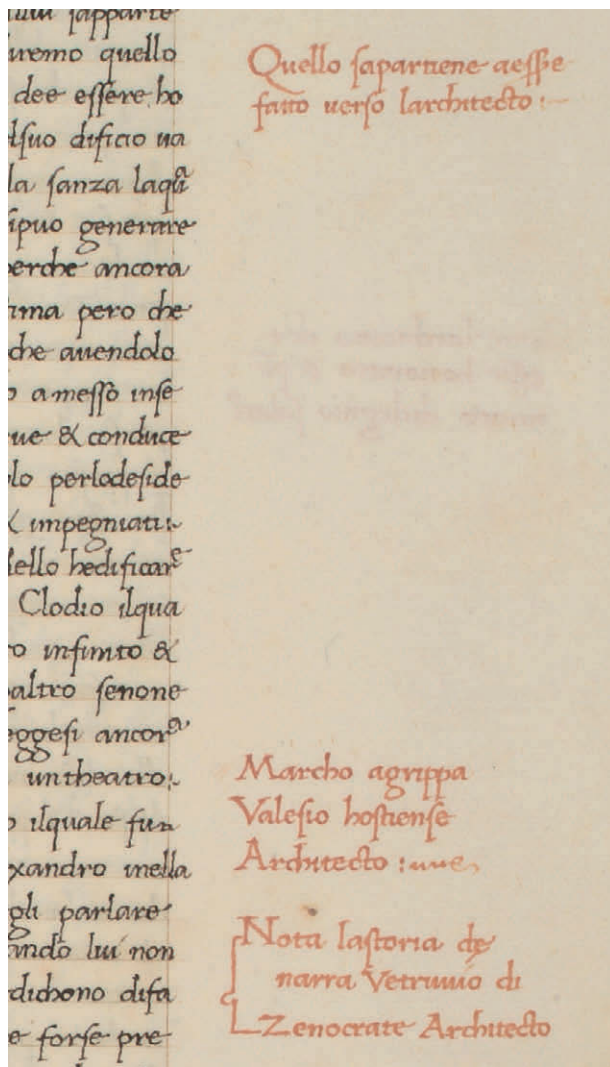 lui sapparte
uremo quello
dee essere ho
lsuo dificio na
la sanza laqͣl
sipuo generare
perche ancora
ima pero che
che auendolo
o amesso inse
ue & conduce
lo perlodeside
& impegniati:
dello hedificarͤ
Clodio ilqua
ro infinito &
altro senone
eggesi ancorͣ
untheatro:
o ilquale fu
xandro inella
gli parlare
ando lui non
dichono difa
e forse pre
Quello sapartiene aesse
fatto uerso larchitecto :
Marcho agrippa
Valesio hostiense
Architecto :
Nota lastoria de
narra Vetruuio di
Zenocrate Architecto